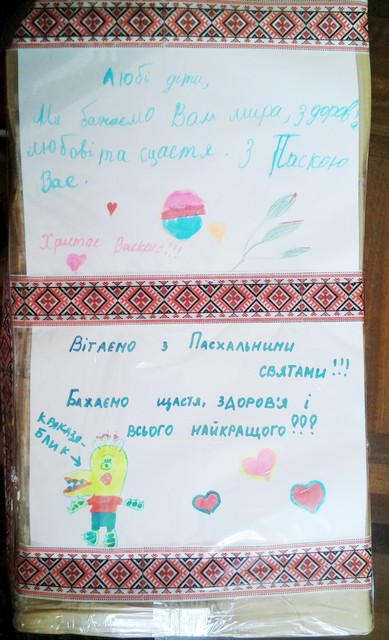 Любі діти,
Ми бажаємо Вам мира, здоров'я
любові та щастя. З Паскою
Вас.
Христос Воскрес!!!
Вітаємо з Пасхальними
святами!!!
Бажаємо щастя, здоров'я і
всього найкращого!!!